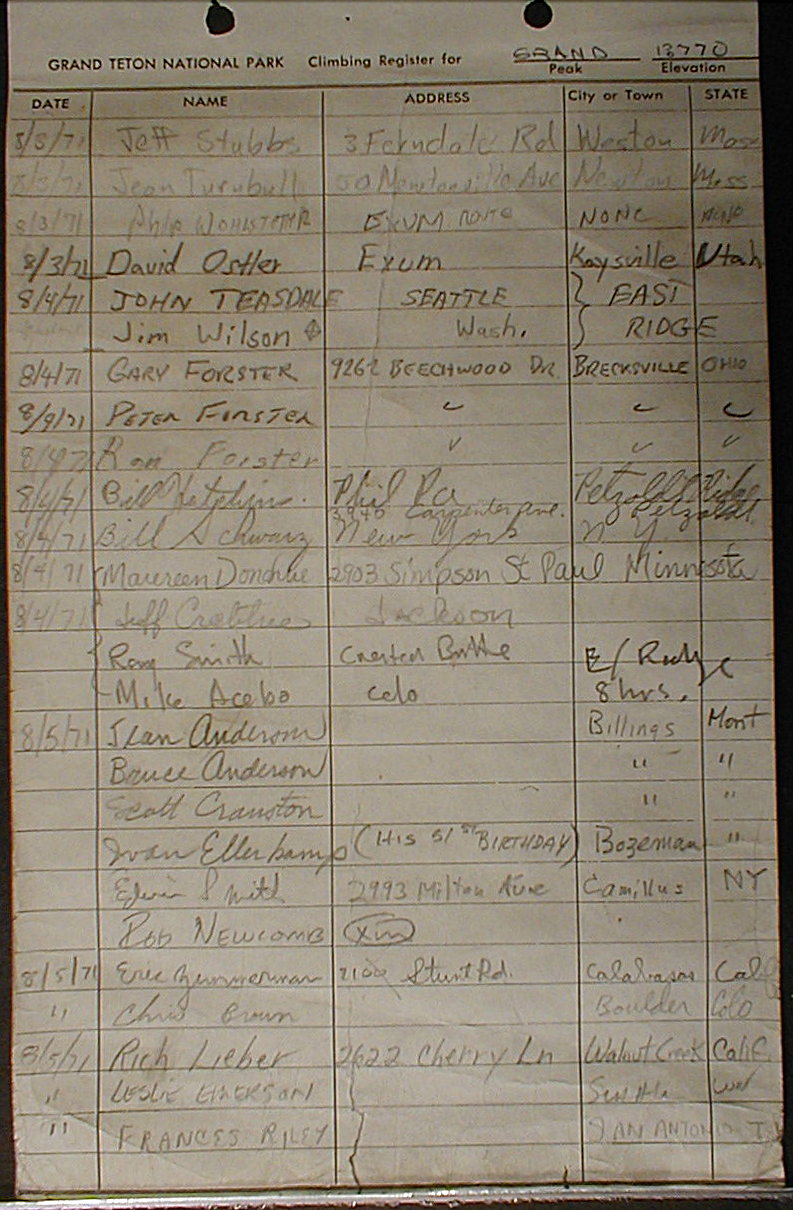 GRAND TETON NATIONAL PARK Climbing Register for GRAND 13770
Peak Elevation
DATE NAME ADDRESS City or Town STATE
8/3/71 Jeff Stubbs 3 Ferndale Rd Weston Mass
8/3/71 Jean Turnbull 50 Newtonville Ave Newton Mass
8/3/71 WOHLSTETTER EXUM ROUTE NONE
8/3/71 David Ostler Exum Kaysville Utah
8/4/71 JOHN TEASDALE SEATTLE } EAST
Jim Wilson Wash. } RIDGE
8/4/71 GARY FORSTER 9262 BEECHWOOD DR BRECKSVILLE OHIO
8/4/71 PETER FORSTER " " "
8/4/71 Ron Forster " " "
8/4/71 Bill Phil Pa Petzoldt Ridge
3940 Carpenter Ave. Petzoldt
8/4/71 Bill Schwarz New York N.Y.
8/4/71 Maureen Donohue 2903 Simpson St Paul Minnisota
8/4/71 Jeff Crabtree Jackson
Ray Smith Crested Butte E/Ridge
Mike Acebo Colo 8 hrs.
8/5/71 Jean Anderson Billings Mont
Bruce Anderson " "
Scott Cranston " "
Ivan Ellerkamp (HIS 51ST BIRTHDAY) Bozeman "
Edwin Smith 2993 Milton Ave Camillus NY
Rob NEWCOMB
8/5/71 Eric Zimmerman Stunt Rd. Calabasas Calif
" Chris Brown Boulder Colo
8/5/71 Rich Lieber 2622 Cherry Ln Walnut Creek Calif.
" LESLIE EMERSON Seattle
" FRANCES RILEY SAN ANTONIO